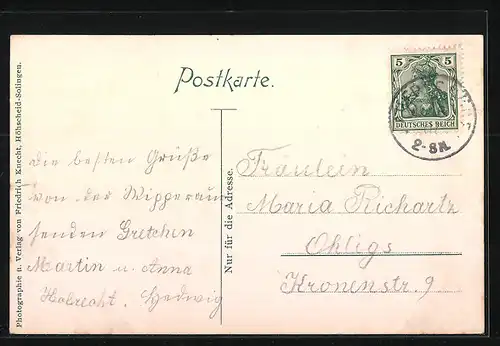 Postkarte.
5 5
DEUTSCHES REICH
2-3N.
Photographie u. Verlag von Friedrich Knecht, Höhscheid-Solingen.
Nur für die Adresse.
Die besten Grüße
von der Wipperaun
senden Gretchen
Martin u. Anna
Halrecht. Hedwig
Fräulein
Maria Richartz
Ohligs
Kronenstr. 9